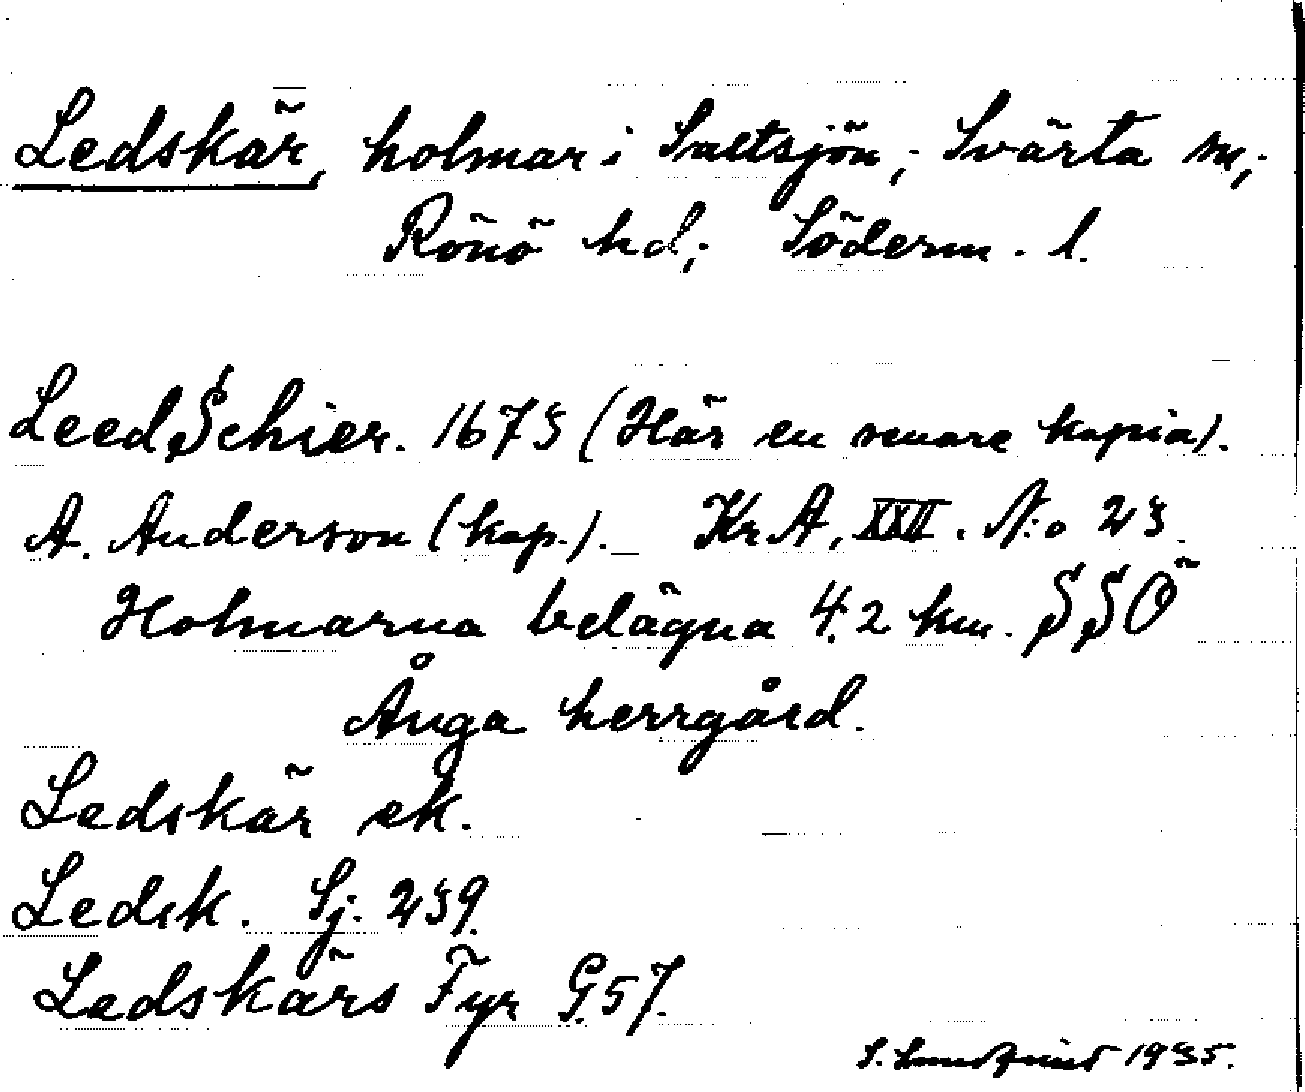 Ledskär, holmar i Saltsjön; Svärta sn;
Rönö hd; Söderm. l.
LeedSchier. 1673 (Här en senare kopia).
A. Anderson (kop.). — Kr A, XXII. N:o 23.
Holmarna belägna 4.2 km. SSÖ
Ånga herrgård.
Ledskär ek.
Ledsk. Sj. 239.
Ledskärs Fyr G.57.
S. Lundqvist 1935.